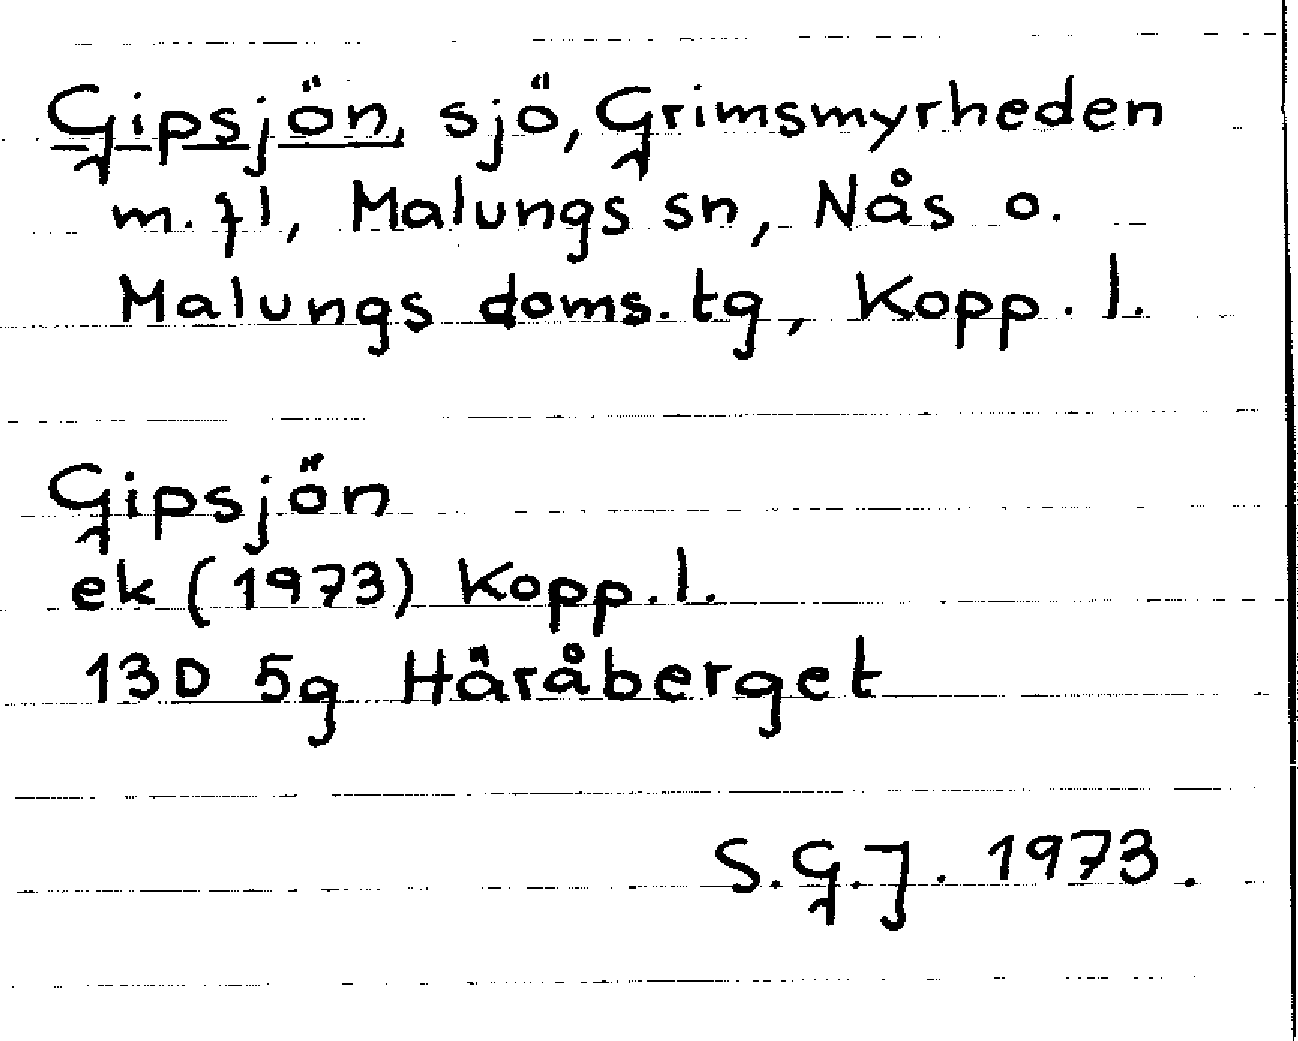 Gipsjön, sjö, Grimsmyrheden
m.fl, Malungs sn, Nås o.
Malungs doms.tg, Kopp.l.
Gipsjön
ek (1973) Kopp.l.
13D 5g Häråberget
S.G.J. 1973.